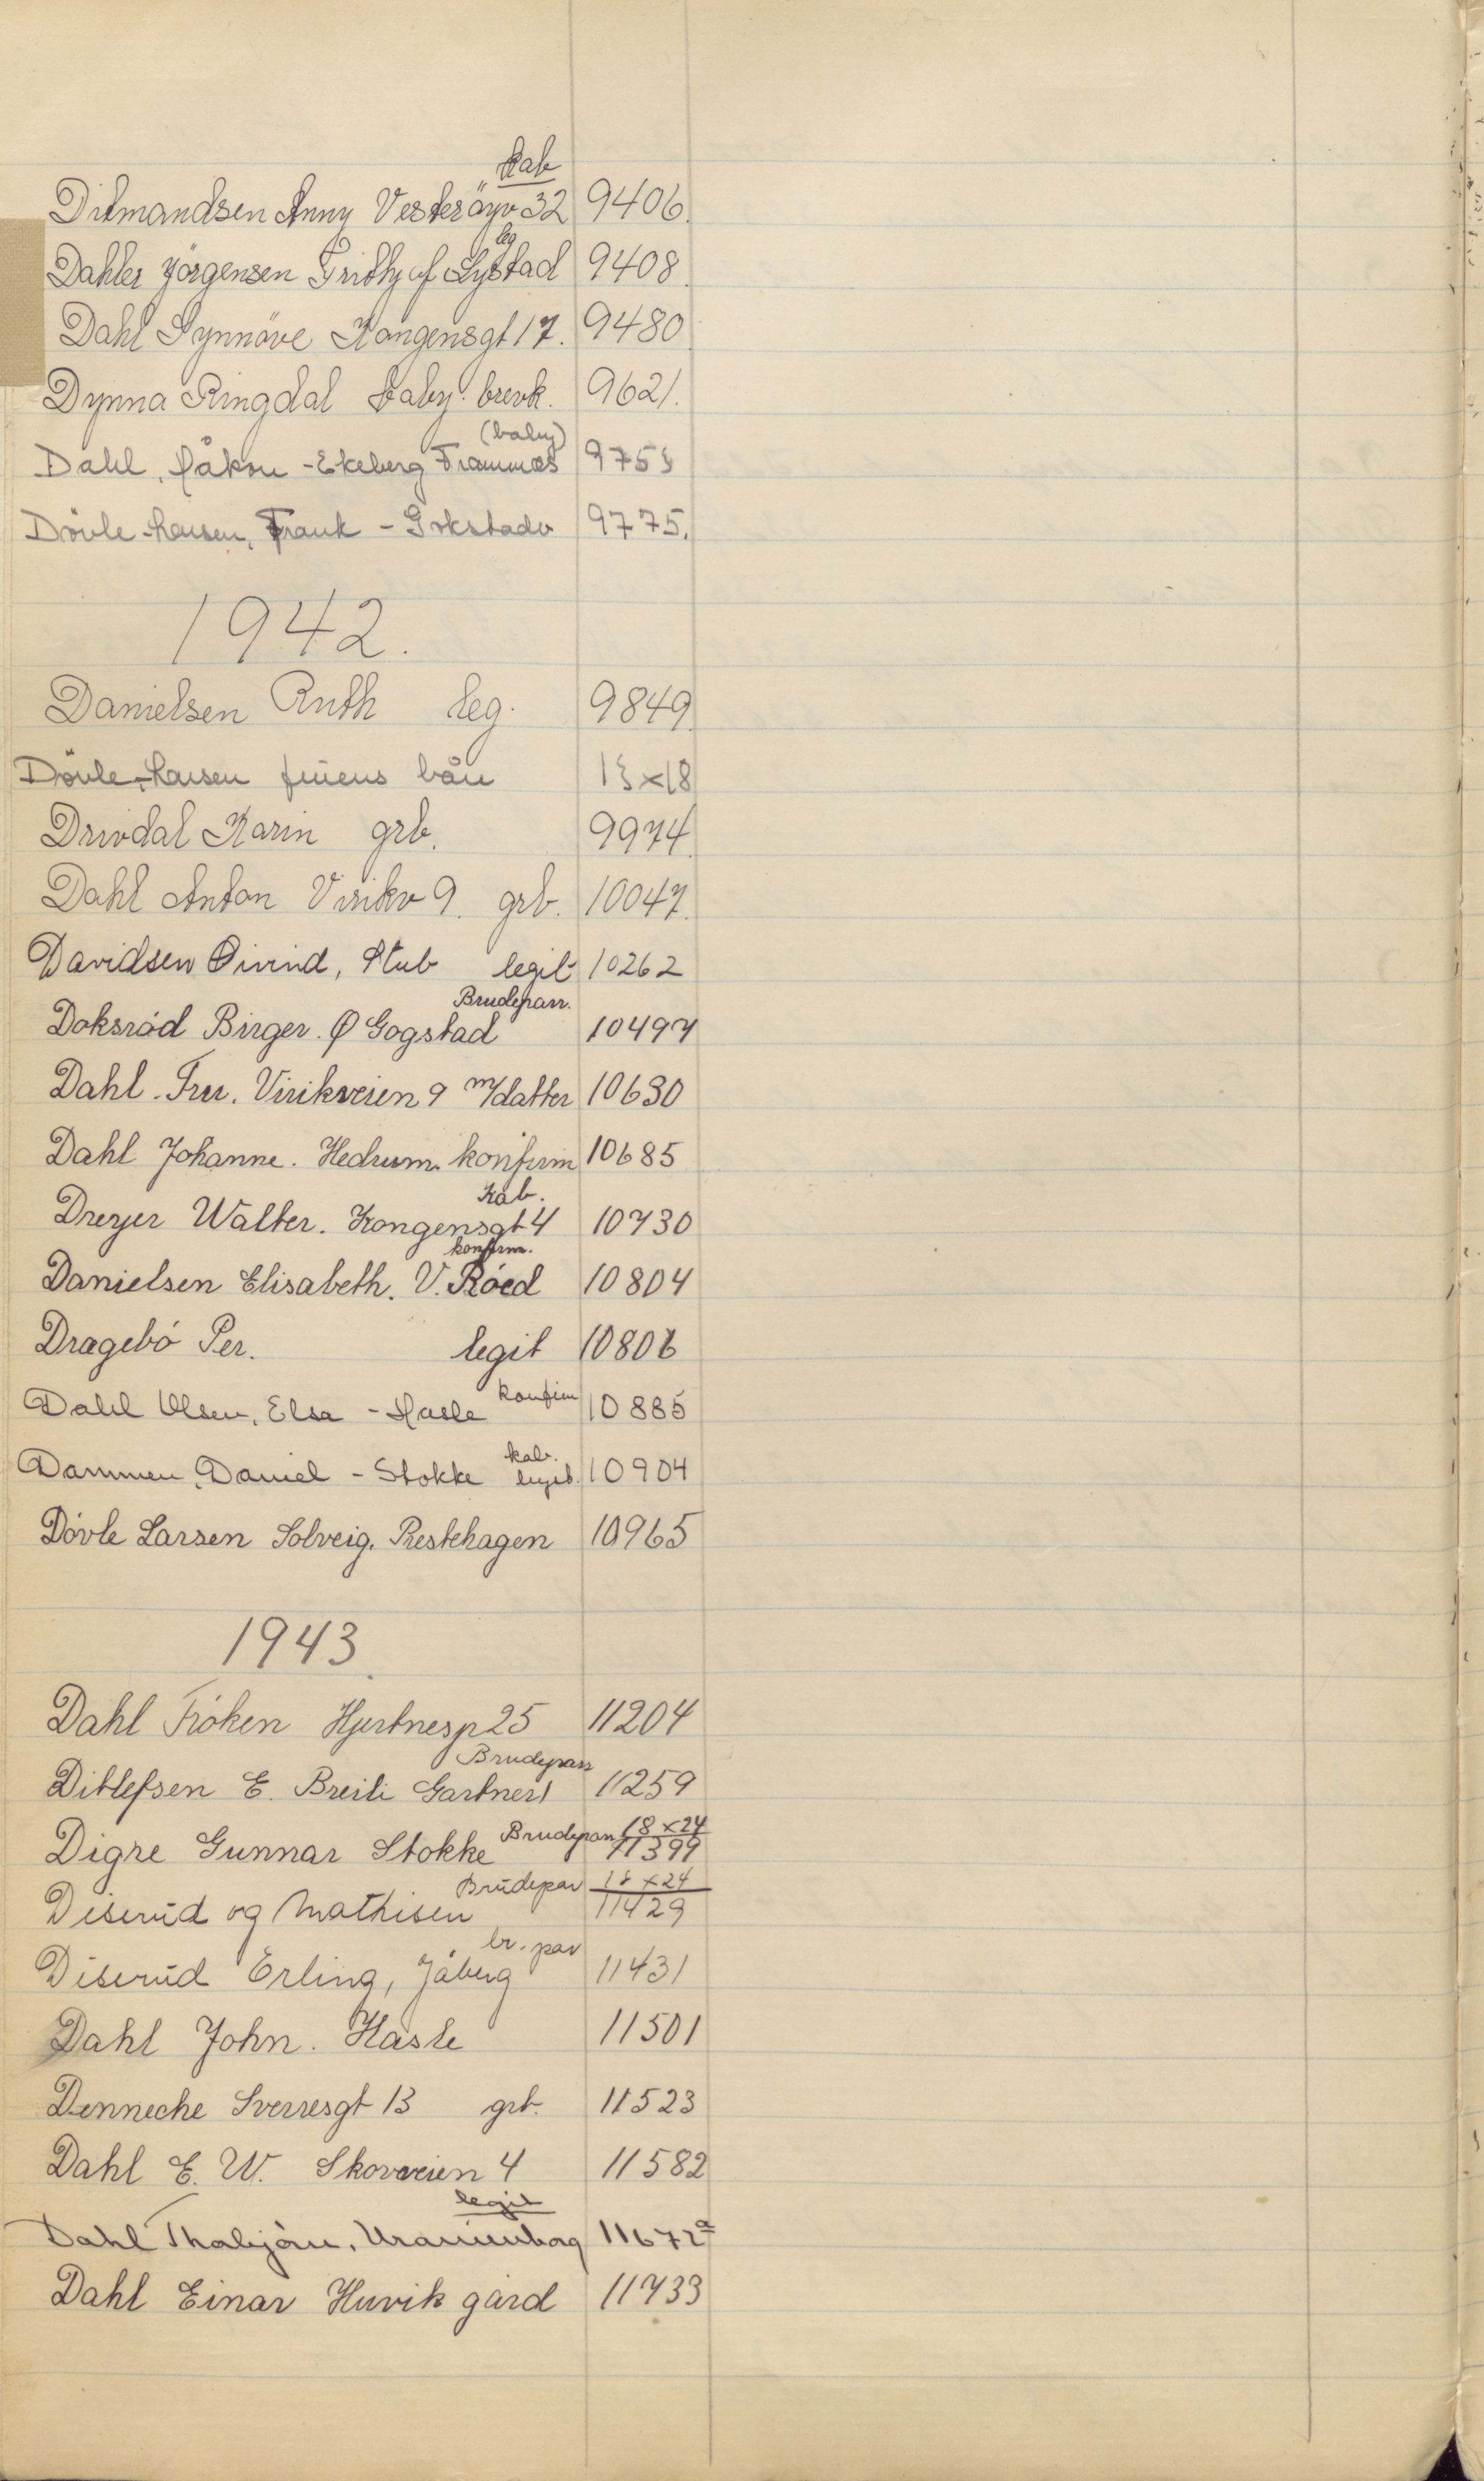 kab
Ditmandsen Anny Vesteröyv 32 9406.
leg
Dahler Jörgensen Fridtjuf Lystad 9408.
Dahl Synnöve Kongensgt 17. 9480
Dynna Ringdal baby. brevk. 9621.
(baby)
Dahl, Håkon - Ekeberg Framnæs 975
Dövle-Larsen, Frank - Gokstadv 9775.
1942.
Danielsen Ruth leg. 9849
Dövle-Larsen 13x18
Drivdal Karin grb. 9974.
Dahl Anton Virikv 9. grb. 10047.
Davidsen Øivind, Stub legit 10262
Brudeparr.
Doksród Birger. Ø Gogstad 10497
Dahl. Fru. Virikveien 9 m/datter 10630
Dahl Johanne. Hedrum. konfirm 10685
Kab.
Dreyer Walter. Kongensgt 4 10730
konfirm.
Danielsen Elisabeth. V. Róed 10804
Dragebó Per. legit 10806
Dahl Olsen, Elsa - Hasle konfirm 10885
kab.
Dammen, Daniel - Stokke legit. 10904
Dóvle Larsen Solveig. Prestehagen 10965
1943.
Dahl Fróken Hjertnesp 25 11204
Brudeparr
Ditlefsen E. Breili Gartneri 11259
18x24
Digre Gunnar Stokke Brudeparr 11399
Brudepar 18x24
Diserud og Mathisen 11429
br. par
Diserud Erling, Jåberg 11431
Dahl John. Hasle 11501
Denneche Sverresgt 13 grb. 11523
Dahl E. W. Skovveien 4 11582
legit
Dahl Thorbjørn, Uranienborg 11672a
Dahl Einar Huvik gård 11733